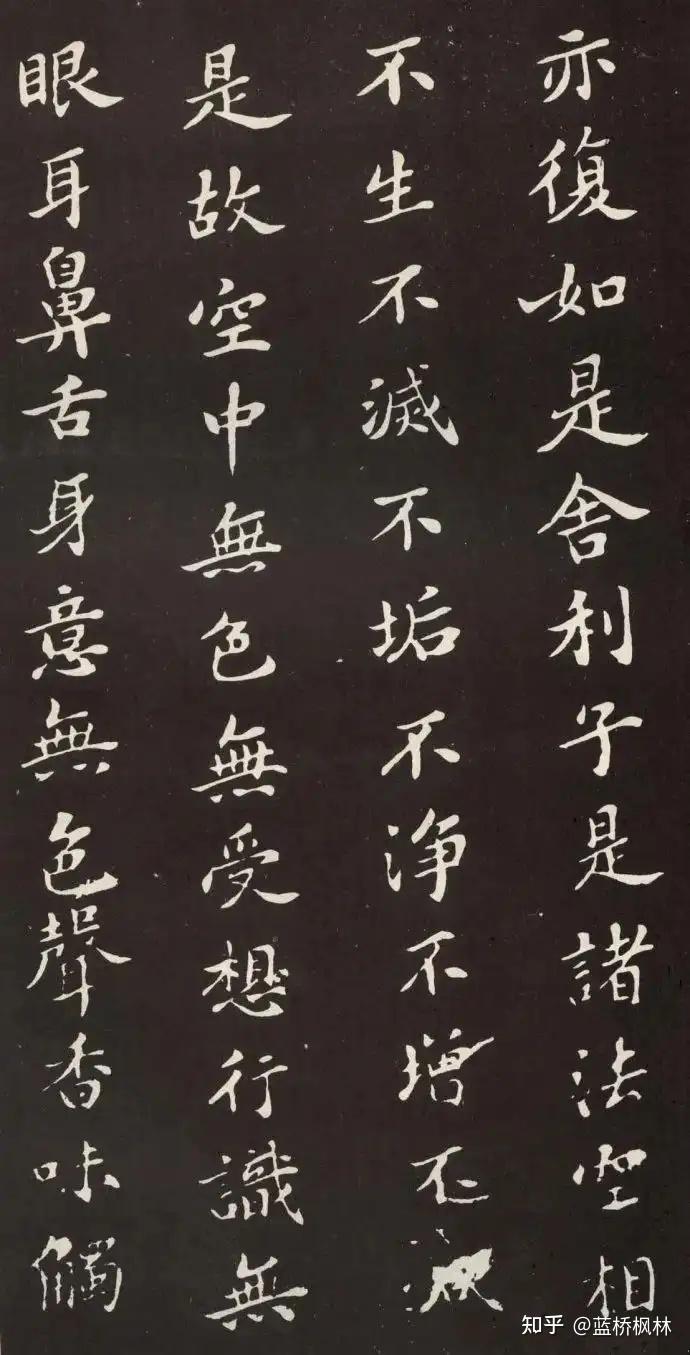 亦復如是舍利子是諸法空相
不生不滅不垢不淨不增不減
是故空中無色無受想行識無
眼耳鼻舌身意無色聲香味觸
知乎 @蓝桥枫林